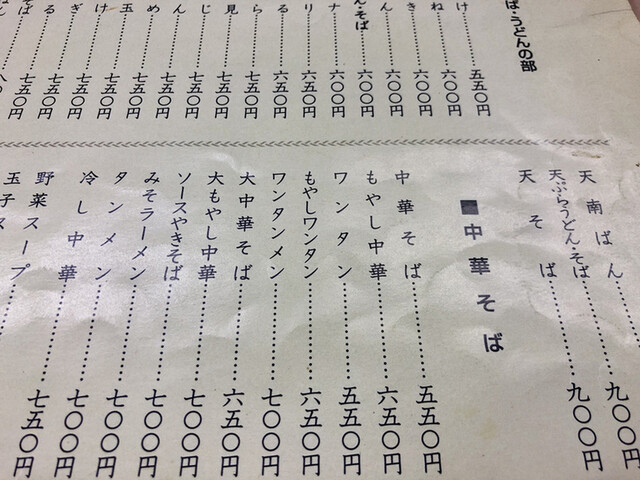 ば・うどんの部
け 五五〇円
ね 六〇〇円
き 六〇〇円
ん 六〇〇円
ん・そば 六〇〇円
ナ 六〇〇円
リ 六五〇円
る 六五〇円
ら 七五〇円
見 七五〇円
じ 七五〇円
ん 七五〇円
め 七五〇円
玉 七五〇円
け 七五〇円
ぎ 七五〇円
る 七五〇円
ば 八〇
天南ばん
天ぷらうどん・そば……九〇〇円
天そば……九〇〇円
■中華そば
中華そば……五五〇円
もやし中華……六五〇円
ワンタン……五五〇円
もやしワンタン……六五〇円
ワンタンメン……七〇〇円
大中華そば……六五〇円
大もやし中華……七〇〇円
ソースやきそば……七〇〇円
みそラーメン……七〇〇円
タンメン……七〇〇円
冷し中華……七五〇円
野菜スープ
玉子スープ